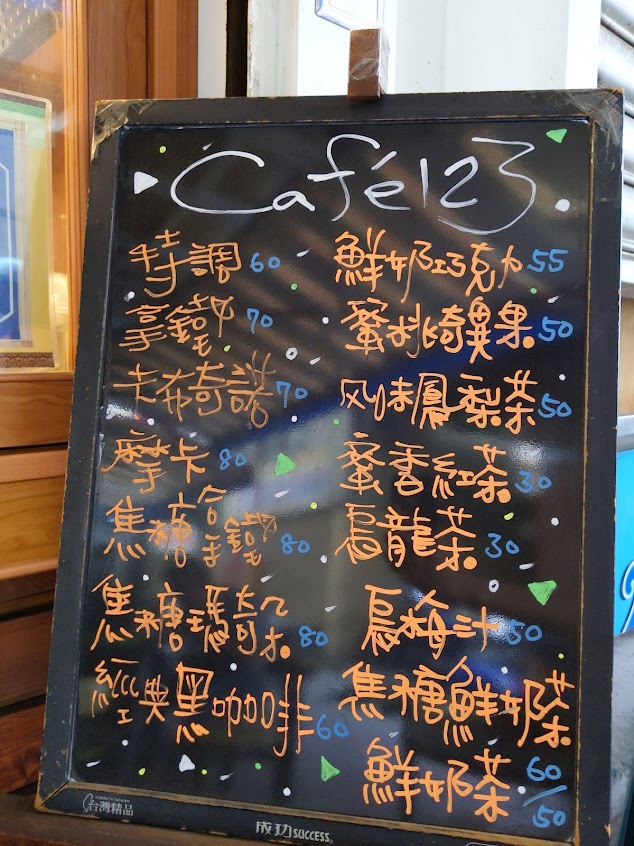 Café123
特調 60
拿鐵 70
卡布奇諾 70
摩卡 80
焦糖拿鐵 80
焦糖瑪奇朵 80
經典黑咖啡 60
鮮奶巧克力 55
蜜桃奇異果 50
風味鳳梨茶 50
蜜香紅茶 30
烏龍茶 30
烏梅汁 50
焦糖鮮奶茶 60
鮮奶茶 50
made in taiwan
台灣精品
成功 SUCCESS